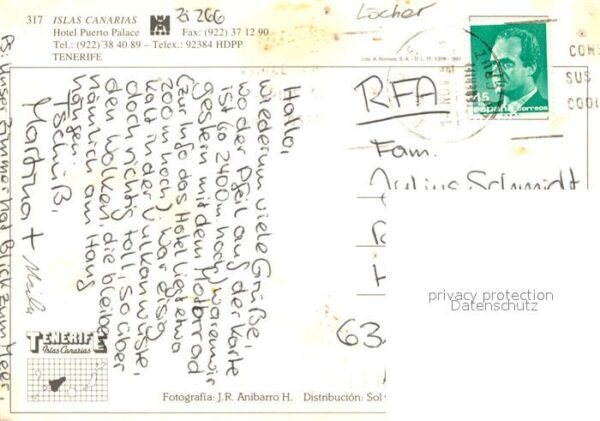 317 ISLAS CANARIAS
Hotel Puerto Palace Fax: (922) 37 12 90
Tel.: (922) 38 40 89 – Telex.: 92384 HDPP
TENERIFE
Zi 266
Löcher
RFA
15
españa correos
TENERIFE
CON
SUS
CODI
Hallo,
wiederum viele Grüße.
wo der Pfeil auf der Karte
ist (ca 2400m hoch) waren wir
gestern mit dem Motorrad
(zur Info das Hotel liegt etwa
200m hoch). War eisig
kalt in der Vulkanwüste,
doch richtig toll, so über
den Wolken, die bleiben
nämlich am Hang
hängen.
Tschüß,
Martina +
PS: Unser Zimmer hat Blick zum Meer,
Fam.
Julius Schmidt
63
privacy protection
Datenschutz
TENERIFE
Islas Canarias
Fotografía: J.R. Anibarro H. Distribución: Sol